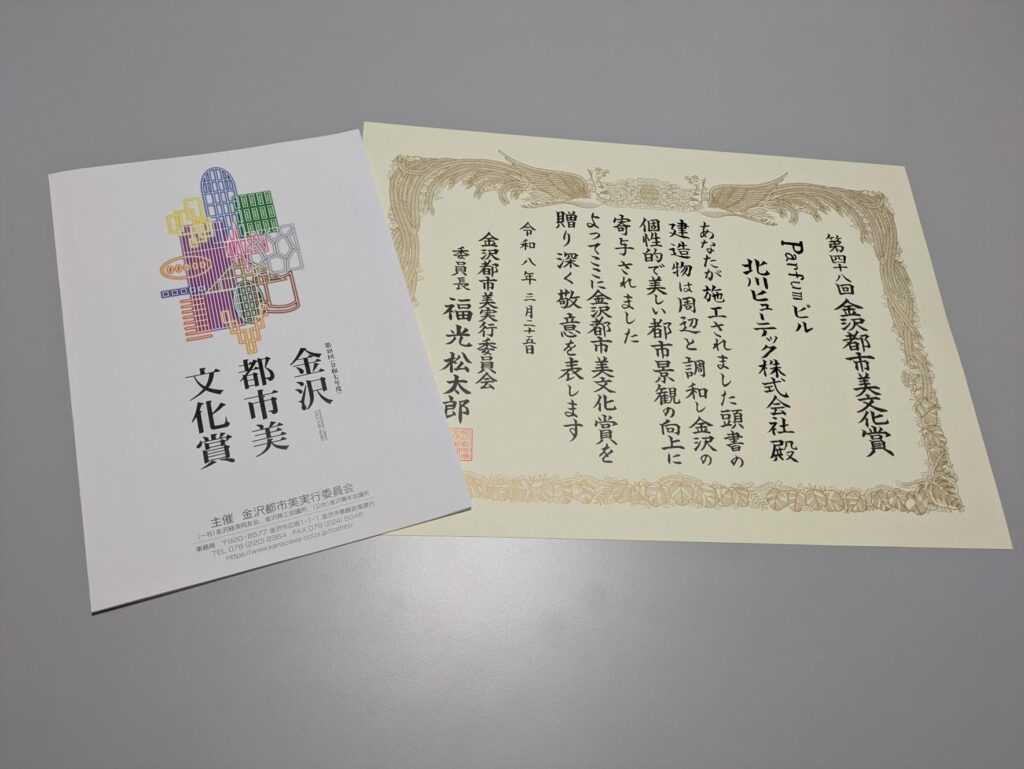 第48回(令和七年度)
金沢
都市美
文化賞
主催 金沢都市美実行委員会
(一社)金沢経済同友会、金沢商工会議所、(公社)金沢青年会議所
事務局 〒920-8577 金沢市広坂1-1-1 金沢市景観政策課内
TEL 076(220)2364 FAX 076(224)5046
第四十八回 金沢都市美文化賞
Parfumビル
北川ヒューテック株式会社 殿
あなたが施工されました頭書の
建造物は周辺と調和し金沢の
個性的で美しい都市景観の向上に
寄与されました
よってここに金沢都市美文化賞を
贈り深く敬意を表します
令和八年三月二十五日
金沢都市美実行委員会
委員長 福光松太郎